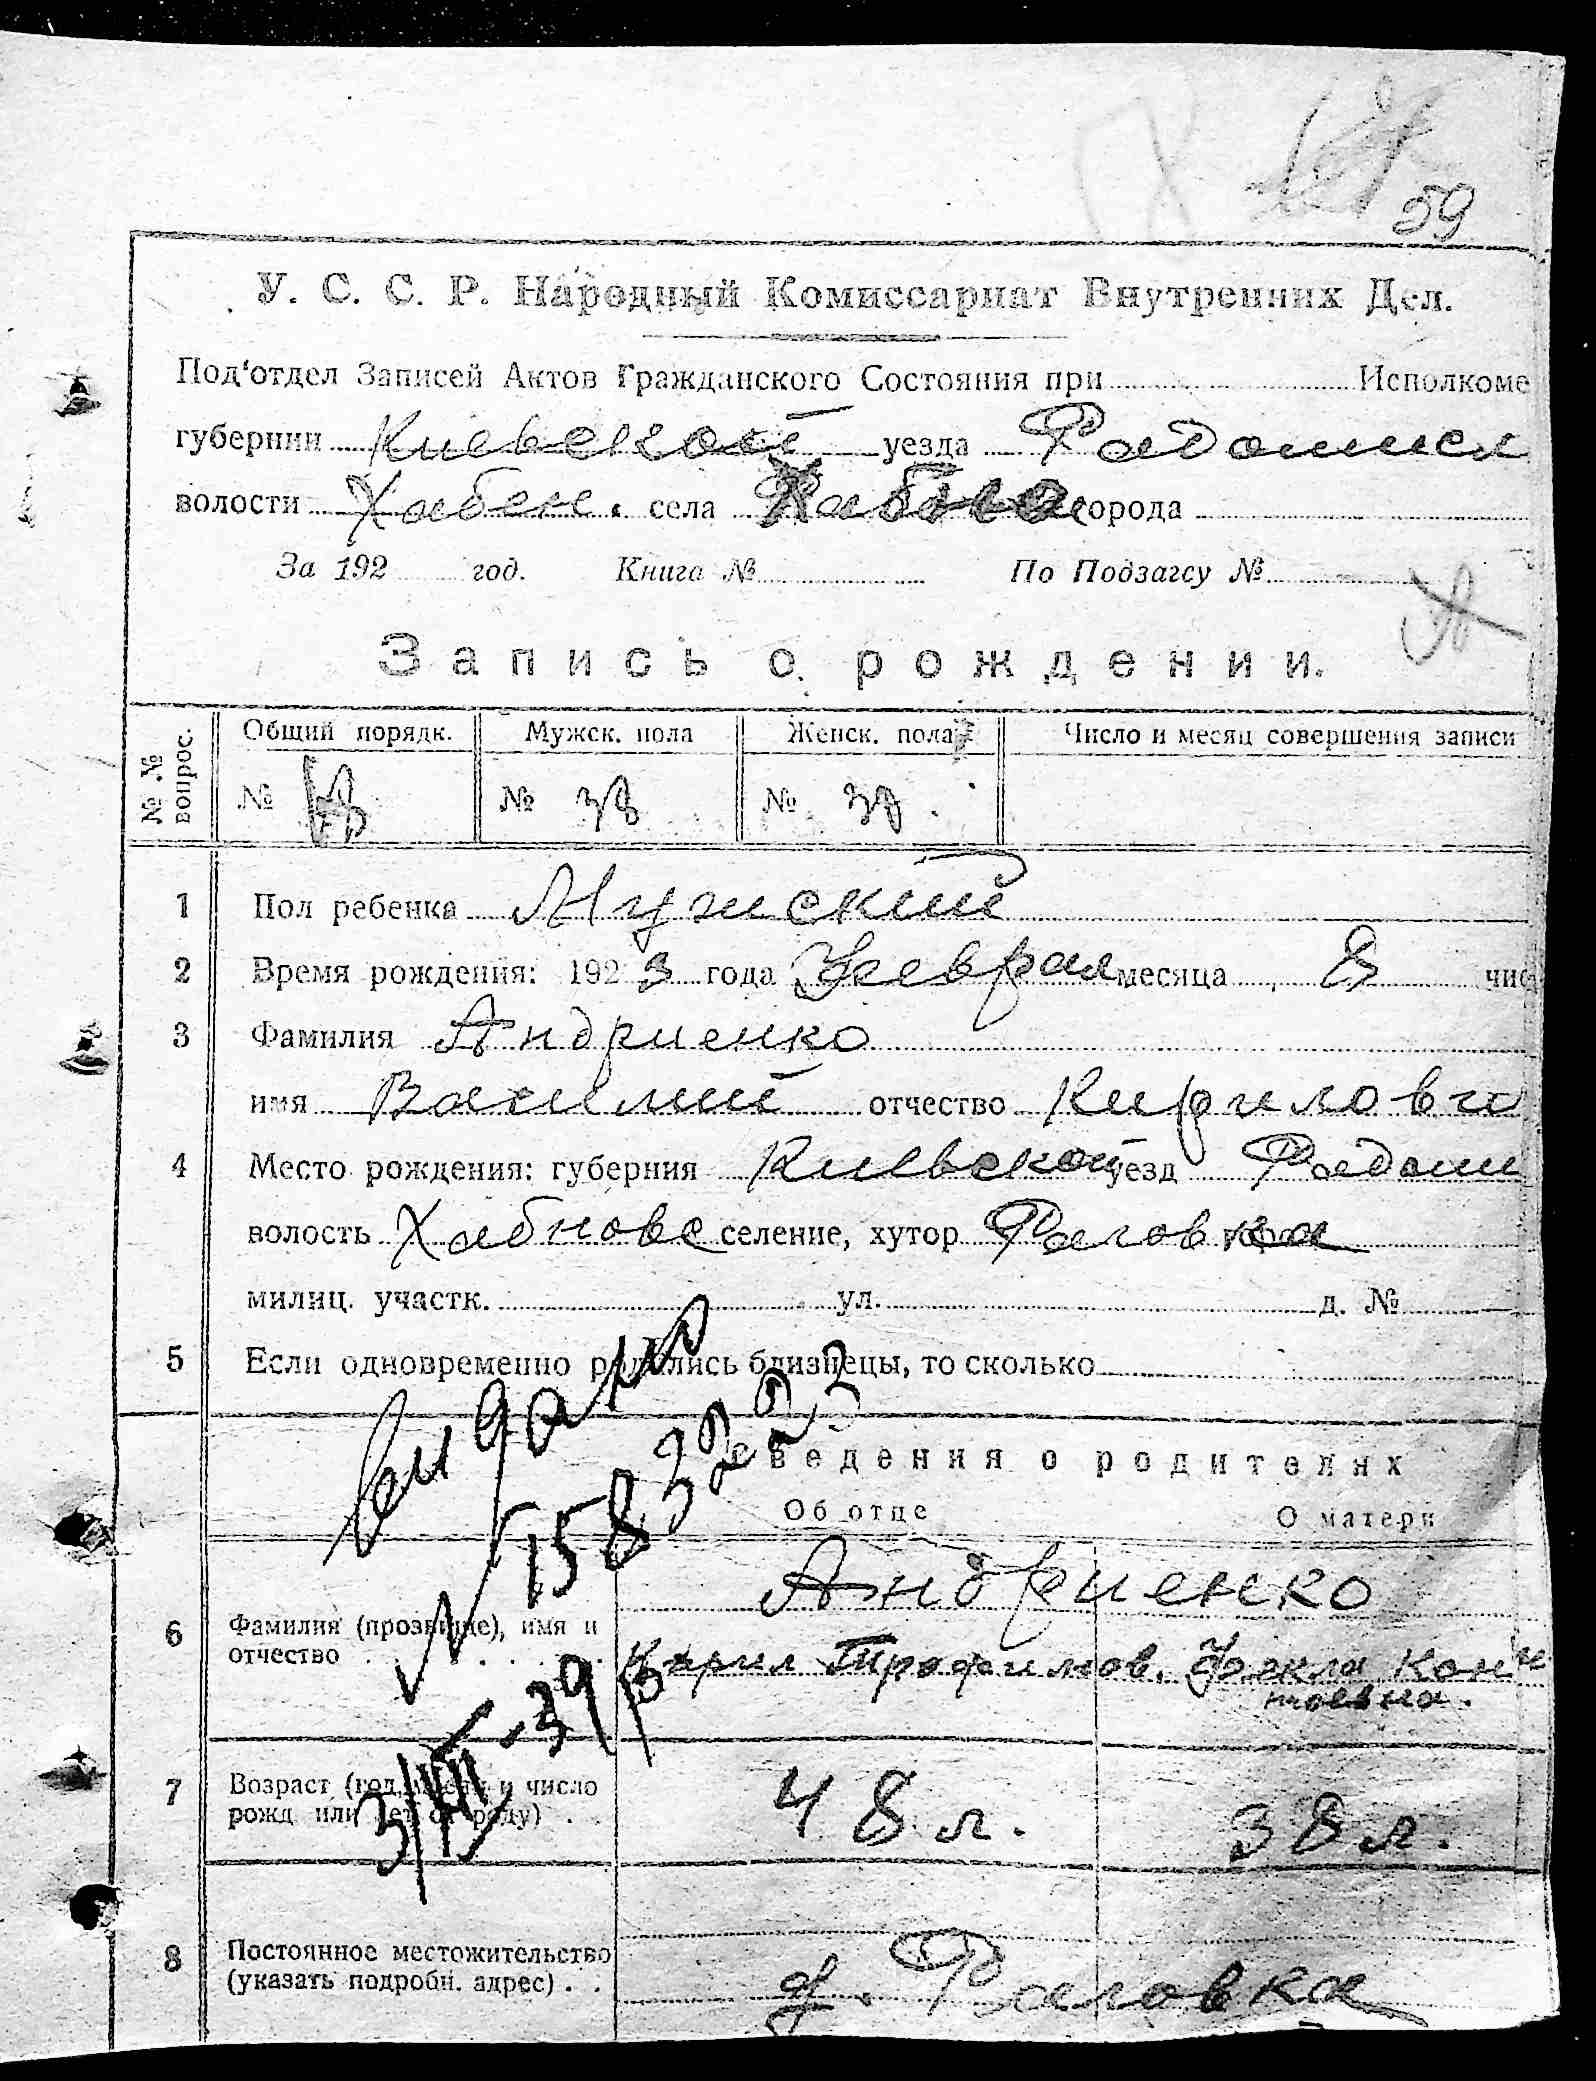 59
У. С. С. Р. Народный Комиссариат Внутренних Дел.
Под'отдел Записей Актов Гражданского Состояния при Исполкоме
губернии Киевской уезда Радомисл
волости Хабен. села города
За 192 год. Книга № По Подзагсу №
Запись о рождении.
№ № вопрос.
Общий порядк. Мужск. пола Женск. пола Число и месяц совершения записи
№ № 38 № 30.
1 Пол ребенка Мужский
2 Время рождения: 1923 года Феврал месяца 8 чис
3 Фамилия Андриенко
имя Василий отчество Кириллови
4 Место рождения: губерния Киевской уезд Радоми
волость Хабновс селение, хутор Раговка
милиц. участк. ул. д. №
5 Если одновременно родились близнецы, то сколько
видано
Сведения о родителях
Об отце О матери
№ 158322
Андриенко
6 Фамилия (прозвище), имя и отчество Кирил Трофимов. Фекла Кон
тьевна.
39 р
7 Возраст (год, месяц и число рожд или лет от роду) . . 48 л. 38 л.
3/VII
8 Постоянное местожительство (указать подробн. адрес) . . д. Раговка